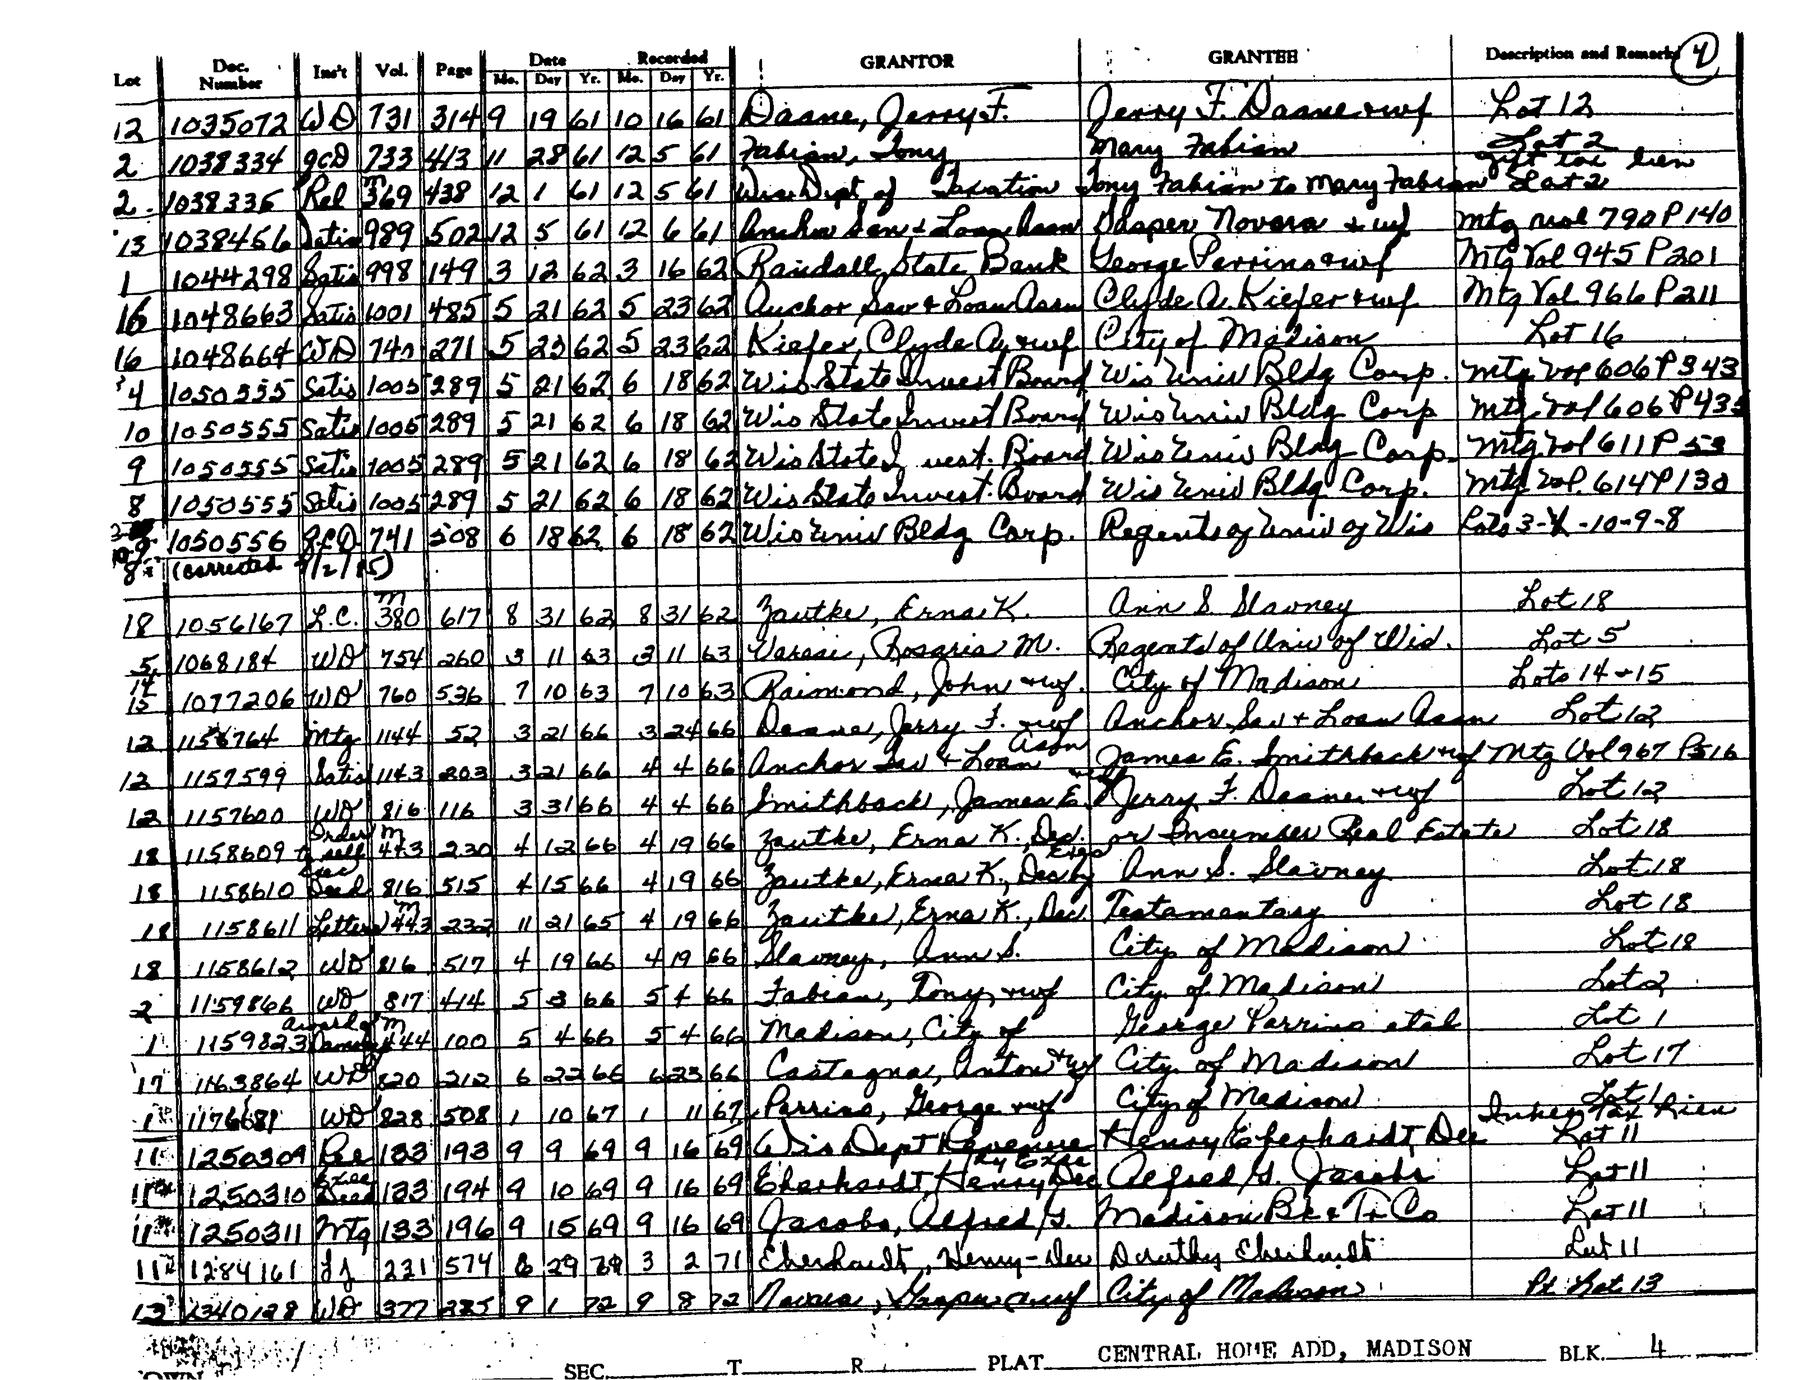 Lot Doc. Number Ins't Vol. Page Date Mo. Day Yr. Recorded Mo. Day Yr. GRANTOR GRANTEE Description and Remarks 4
12 1035072 WD 731 314 9 19 61 10 16 61 Daane, Jerry F. Jerry F. Daane & wf Lot 12
2 1038334 QCD 733 413 11 28 61 12 5 61 Fabian, Tony Mary Fabian Lot 2
gift tax lien
2 1038335 Rel M 369 438 12 1 61 12 5 61 Wis Dept of Taxation Tony Fabian to Mary Fabian Lot 2
13 1038456 Satis 989 502 12 5 61 12 6 61 Anchor Sav & Loan Assn Gasper Novara & wf Mtg Vol 790 P 140
1 1044298 Satis 998 149 3 12 62 3 16 62 Randall State Bank George Parrino & wf Mtg Vol 945 P 201
16 1048663 Satis 1001 485 5 21 62 5 23 62 Anchor Sav & Loan Assn Clyde A. Kiefer & wf Mtg Vol 966 P 211
16 1048664 WD 740 271 5 23 62 5 23 62 Kiefer, Clyde A. & wf City of Madison Lot 16
4 1050555 Satis 1005 289 5 21 62 6 18 62 Wis State Invest Board Wis Univ Bldg Corp. Mtg Vol 606 P 343
10 1050555 Satis 1005 289 5 21 62 6 18 62 Wis State Invest Board Wis Univ Bldg Corp Mtg Vol 606 P 435
9 1050555 Satis 1005 289 5 21 62 6 18 62 Wis State Invest. Board Wis Univ Bldg Corp. Mtg Vol 611 P 53
8 1050555 Satis 1005 289 5 21 62 6 18 62 Wis State Invest. Board Wis Univ Bldg Corp. Mtg Vol. 614 P 130
10-9 1050556 QCD 741 508 6 18 62 6 18 62 Wis Univ Bldg Corp. Regents of Univ of Wis Lots 3-4-10-9-8
8 (corrected /2/85)
18 1056167 L.C. M 380 617 8 31 62 8 31 62 Zautke, Erna K. Ann S. Slavney Lot 18
5 1068184 WD 754 260 3 11 63 3 11 63 Varasi, Rosaria M. Regents of Univ of Wis. Lot 5
14 15 1077206 WD 760 536 7 10 63 7 10 63 Raimond, John & wf. City of Madison Lots 14 & 15
12 1156764 Mtg 1144 52 3 21 66 3 24 66 Daane, Jerry F. & wf Anchor Sav & Loan Assn Lot 12
12 1157599 Satis 1143 203 3 21 66 4 4 66 Anchor Sav & Loan Assn James E. Smithback & wf Mtg Vol 967 P 516
12 1157600 WD 816 116 3 31 66 4 4 66 Smithback, James E. & wf Jerry F. Daane & wf Lot 12
18 1158609 Order to sell M 443 230 4 12 66 4 19 66 Zautke, Erna K., Dec. or Incumber Real Estate Lot 18
18 1158610 Exec Deed 816 515 4 15 66 4 19 66 Zautke, Erna K., Dec by Exec Ann S. Slavney Lot 18
18 1158611 Letters M 443 232 11 21 65 4 19 66 Zautke, Erna K., Dec Testamentary Lot 18
18 1158612 WD 816 517 4 19 66 4 19 66 Slavney, Ann S. City of Madison Lot 18
2 1159866 WD 817 414 5 3 66 5 4 66 Fabian, Tony, & wf City of Madison Lot 2
1 1159823 award of Damages M 444 100 5 4 66 5 4 66 Madison, City of George Parrino etal Lot 1
17 1163864 WD 820 212 6 22 66 6 23 66 Castagna, Anton & wf City of Madison Lot 17
1 1176681 WD 828 508 1 10 67 1 11 67 Parrino, George & wf City of Madison Lot 1
Inher Tax Lien
11 1250309 Rel 133 193 9 9 69 9 16 69 Wis Dept Revenue Henry Eberhardt Dec Lot 11
11 1250310 Exec Deed 133 194 9 10 69 9 16 69 Eberhardt, Henry Dec by Exec Alfred G. Jacobs Lot 11
11 1250311 Mtg 133 196 9 15 69 9 16 69 Jacobs, Alfred G. Madison Bk & Tr Co Lot 11
11 1284161 FJ 231 574 29 3 2 71 Eberhardt, Henry-Dec Dorothy Eberhardt Lot 11
13 1340128 WD 377 285 9 1 72 9 8 72 Novara, Gasper & wf City of Madison Pt Lot 13
OWN SEC. T. R. PLAT CENTRAL HOME ADD, MADISON BLK. 4